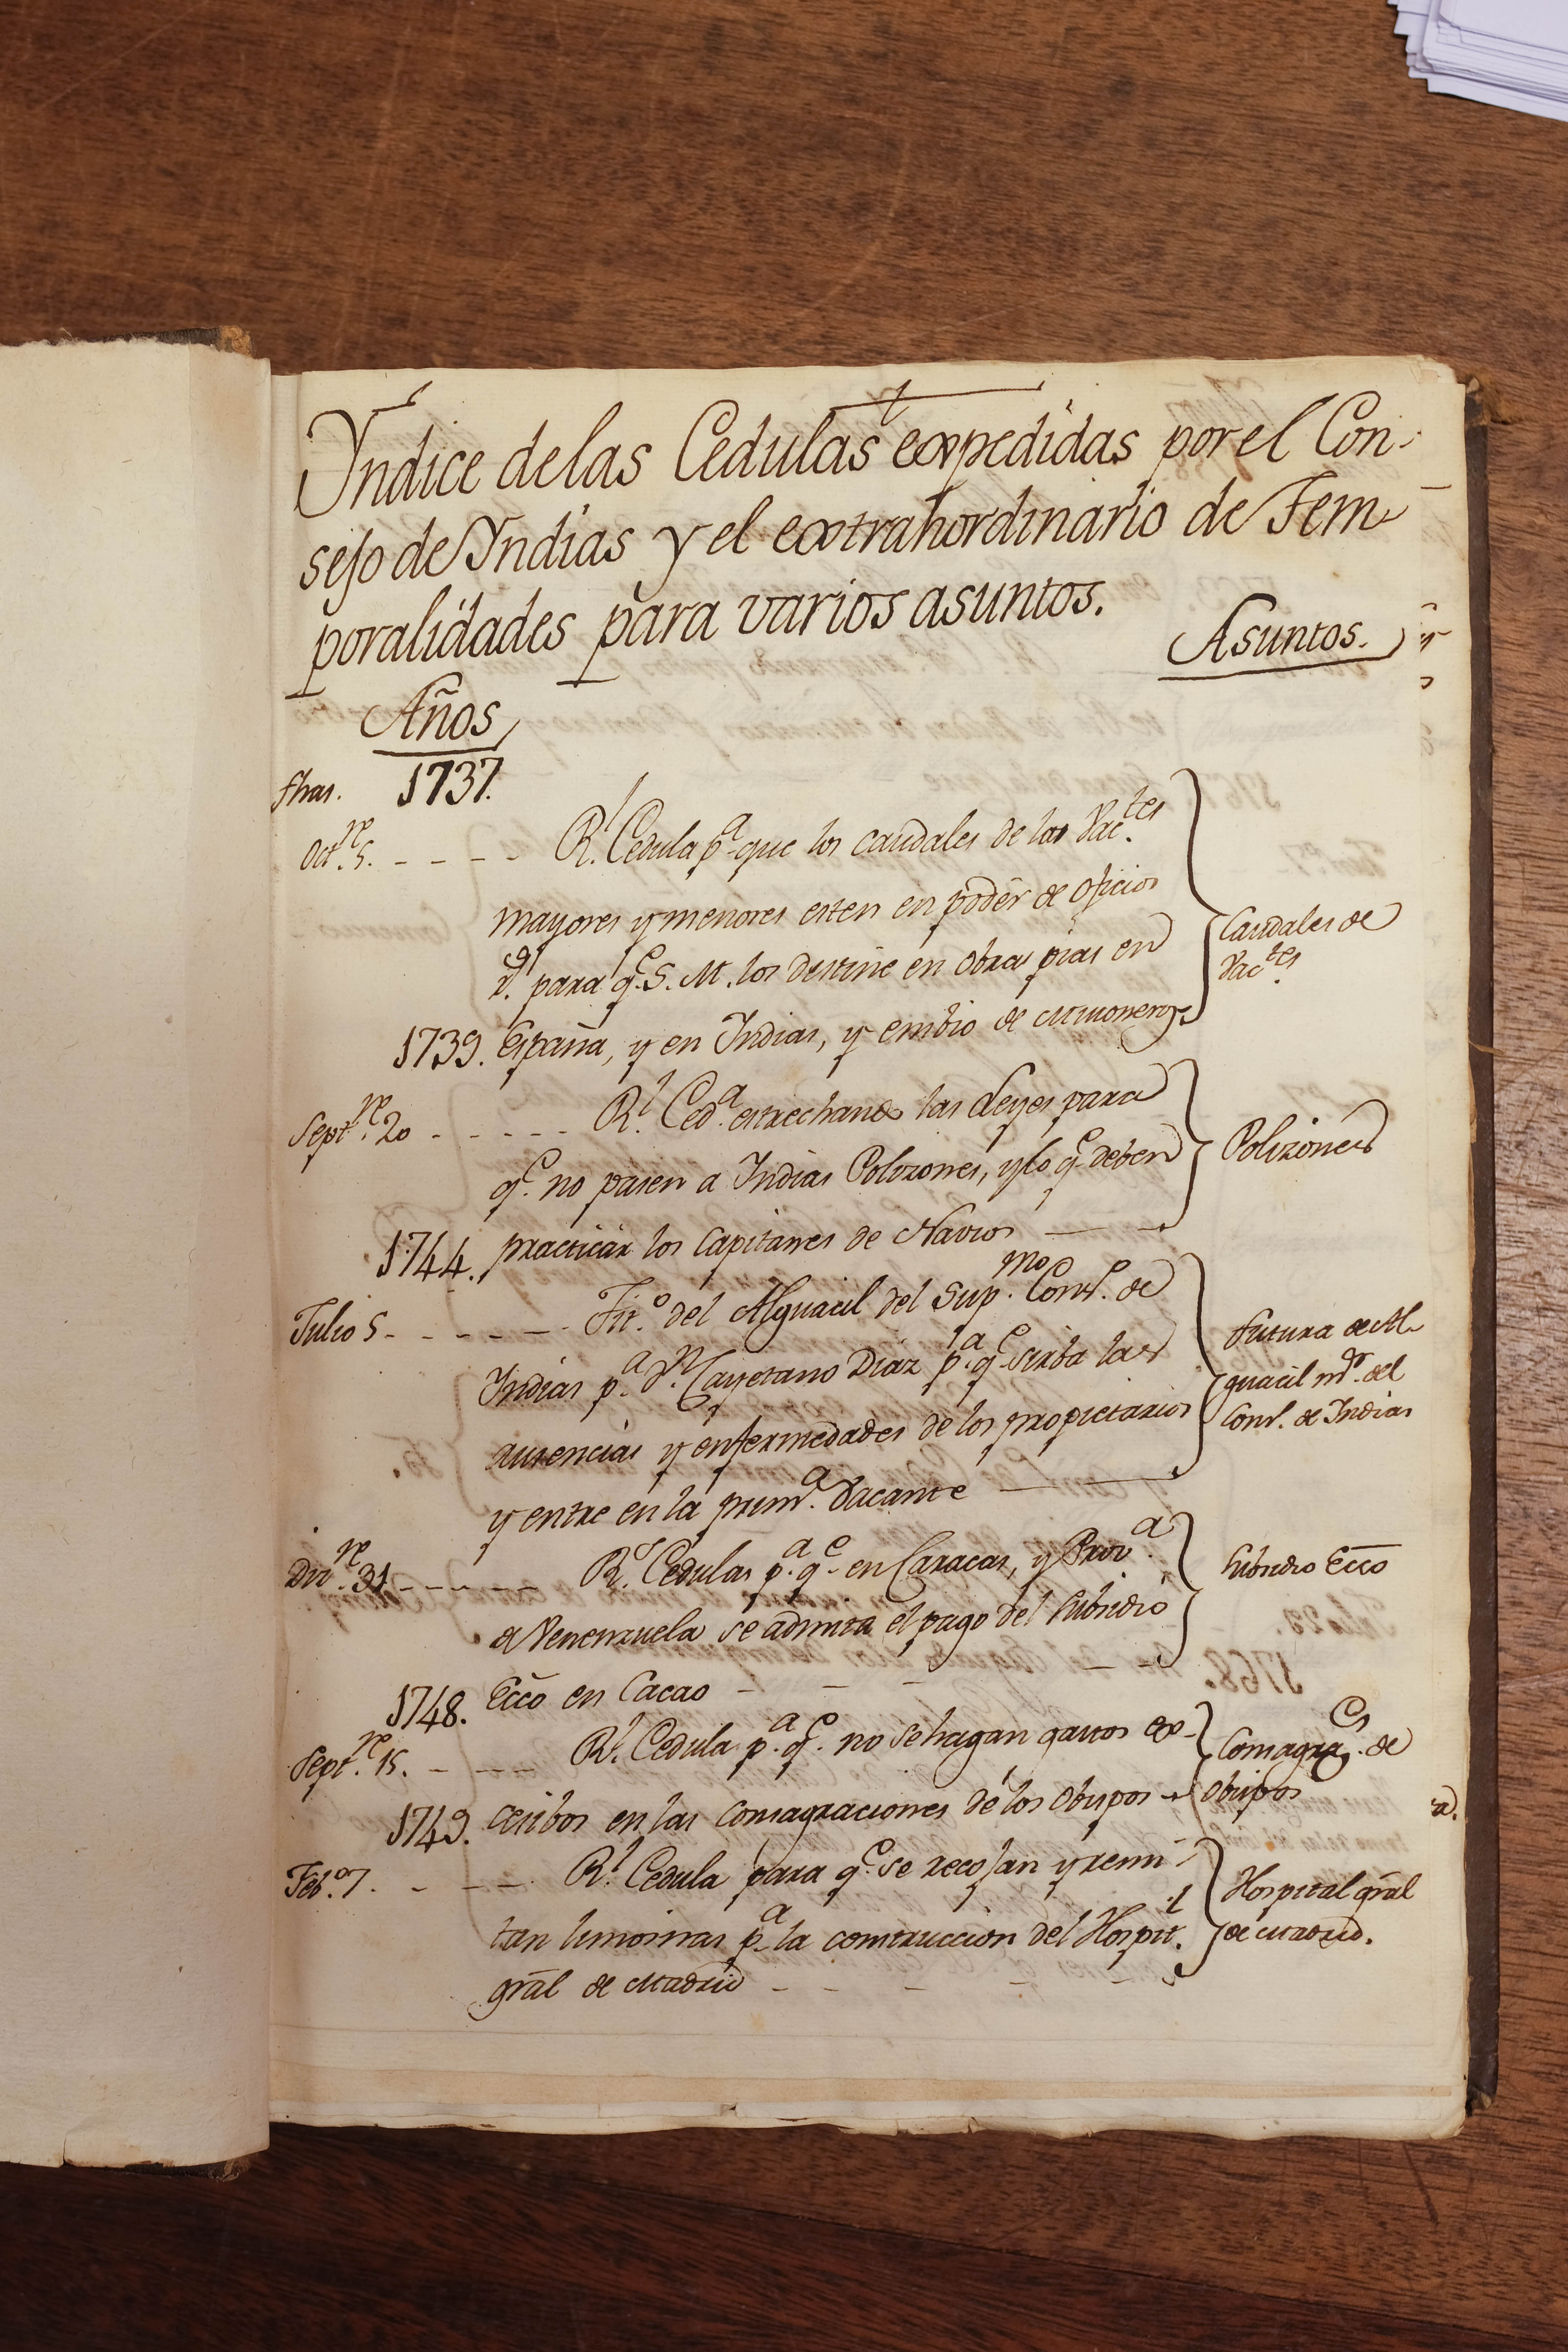 Yndice delas Cedulas expedidas por el Con-
sejo de Yndias y el extrahordinario de Tem-
poralidades para varios asuntos.
Asuntos.
Años
fhas. 1737.
Oct.re 5. - - - - Rl. Cedula pa. que los caudales de las Vac.tes
mayores y menores esten en podèr de oficios
rs. para qe. S. M. los destine en obras pias en
Caudales de
Vac.tes
1739. España, y en Indias, y embio de Misioneros
Sept.re 20 - - - - - Rl. Ced.a estrechando las Leyes para
qe. no pasen a Indias Polizones, y lo qe. deben
Polizones
1744. practicàr los Capitanes de Navios
Julio 5 - - - - - Tit.o del Alguacil del Sup.mo Cons.o de
Indias p.a Dn. Cayetano Diaz p.a qe. sirba las
ausencias y enfermedades de los propietarios
y entre en la prim.a Vacante
Futura de Al-
guacil m.or del
Cons.o de Indias
Diz.re 31 - - - - - Rs. Cedulas p.a qe. en Caracas, y Prov.a
de Venenzuela se admita el pago del Subsidio
Subsidio Ecco
1748. Ecco en Cacao - - - - -
Sept.re 15. - - - - Rl. Cedula p.a qe. no se hagan gastos ex-
1749. cesibos en las consagraciones de los obispos
Consagra.es de
Obispos
Feb.o 7. - - - - Rl. Cedula para qe. se recojan y remi-
tan limosnas p.a la construccion del Hospit.l
grãl de Madrid - - - - -
Hospital grãl
de Madrid.